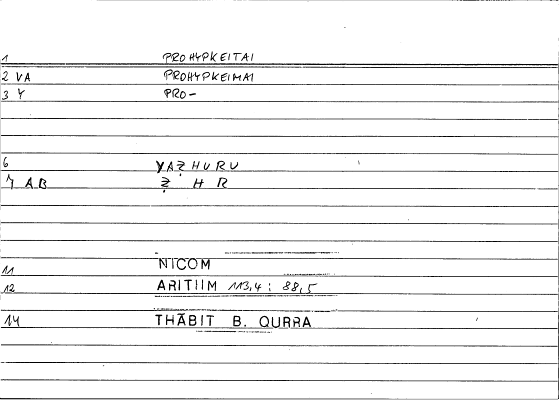 1 PROHYPKEITAI
2 VA PROHYPKEIMAI
3 Y PRO-
6 YAẒHURU
7 AB Ẓ H R
11 NICOM
12 ARITIIM 113,4 : 88,5
14 THĀBIT B. QURRA